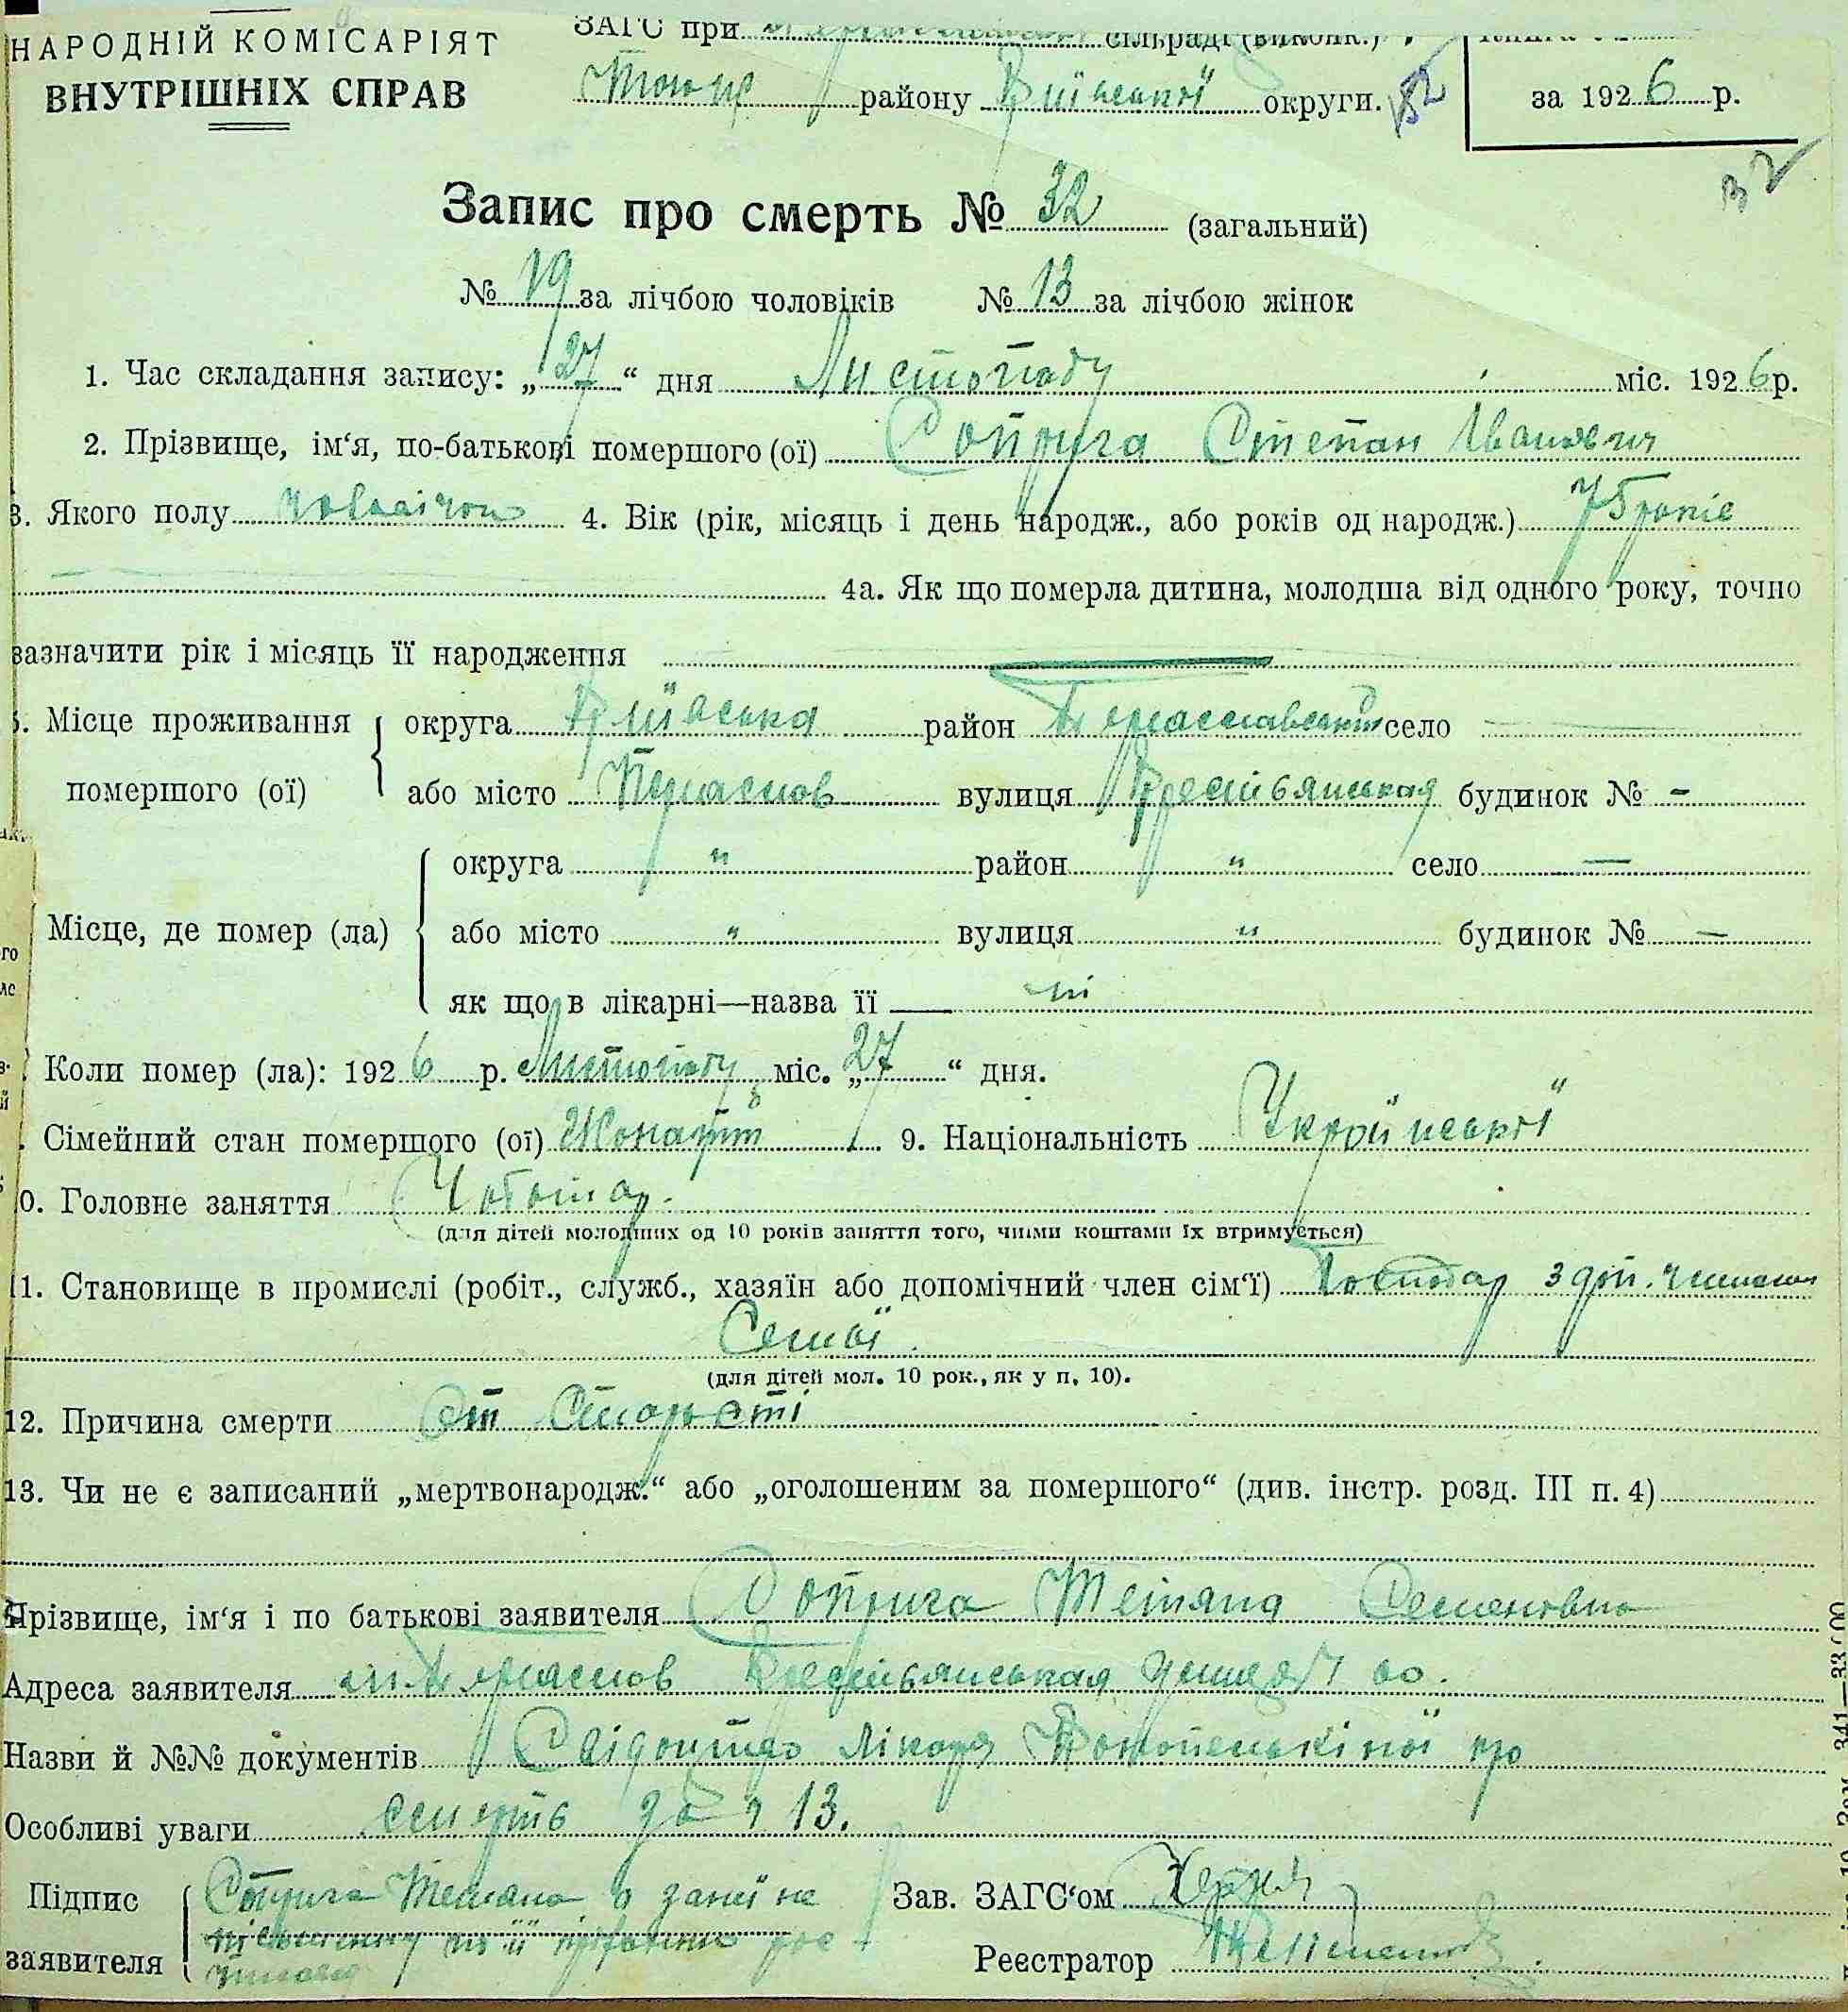 НАРОДНІЙ КОМІСАРІЯТ
ВНУТРІШНІХ СПРАВ
ЗАГС при сільраді (виконк.)
району Київської округи.
за 1926 р.
32
Запис про смерть № 32 (загальний)
№ 19 за лічбою чоловіків № 13 за лічбою жінок
1. Час складання запису: „27“ дня Листопаду міс. 1926 р.
2. Прізвище, ім‘я, по-батькові помершого (ої) Сопруга Степан Іванович
3. Якого полу 4. Вік (рік, місяць і день народж., або років од народж.) 75 років
4а. Як що померла дитина, молодша від одного року, точно
зазначити рік і місяць її народження
Місце проживання округа Київська район село
помершого (ої) або місто Переяслов вулиця будинок № -
округа " район " село —
Місце, де помер (ла) або місто " вулиця " будинок № —
як що в лікарні—назва її ні
Коли помер (ла): 1926 р. Листопаду міс. „27“ дня.
Сімейний стан помершого (ої) Жонатий 9. Національність Української
10. Головне заняття Чоботар.
(для дітей молодших од 10 років заняття того, чиїми коштами їх втримується)
11. Становище в промислі (робіт., служб., хазяїн або допомічний член сім‘ї) Господар з доп. членами
Семьї.
(для дітей мол. 10 рок., як у п. 10).
12. Причина смерти От старості
13. Чи не є записаний „мертвонародж.“ або „оголошеним за помершого“ (див. інстр. розд. III п. 4)
Прізвище, ім‘я і по батькові заявителя Сопруга Тетяна Семеновна
Адреса заявителя м. Переяслов
Назви й №№ документів Свідоцтво лікаря про
Особливі уваги смерть за № 13.
Підпис Сопруга Тетяна а за неї не
заявителя
Зав. ЗАГС‘ом
Реєстратор